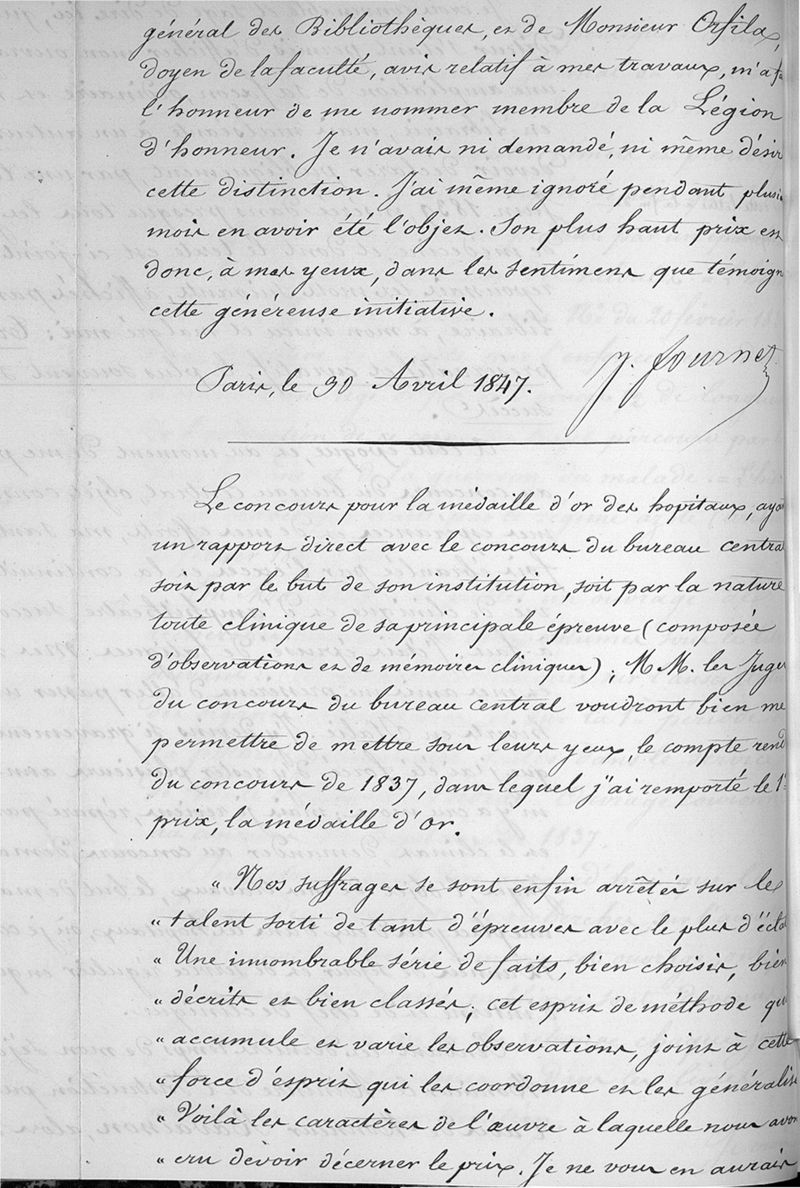 général des Bibliothèques, et de Monsieur Orfila,
doyen de la faculté, avis relatif à mes travaux, m'a fa
l'honneur de me nommer membre de la Légion
d'honneur. Je n'avais ni demandé, ni même désir
cette distinction. J'ai même ignoré pendant plusi
mois en avoir été l'objet. Son plus haut prix es
donc, à mes yeux, dans les sentimens que témoign
cette généreuse initiative.
Paris, le 30 Avril 1847. J. Fournet
Le concours pour la médaille d'or des hopitaux, aya
un rapport direct avec le concours du bureau central
soit par le but de son institution, soit par la nature
toute clinique de sa principale épreuve (composée
d'observations et de mémoires cliniques); M M. les Juges
du concours du bureau central voudront bien me
permettre de mettre sous leurs yeux, le compte rend
du concours de 1837, dans lequel j'ai remporté le 1er
prix, la médaille d'or.
" Nos suffrages se sont enfin arrêtés sur le
" talent sorti de tant d'épreuves avec le plus d'éclat
" Une innombrable série de faits, bien choisis, bien
" décrits et bien classés; cet esprit de méthode qui
" accumule et varie les observations, joint à cette
" force d'esprit qui les coordonne et les généralise
" Voilà les caractères de l'œuvre à laquelle nous avon
" cru devoir décerner le prix. Je ne vous en aurais